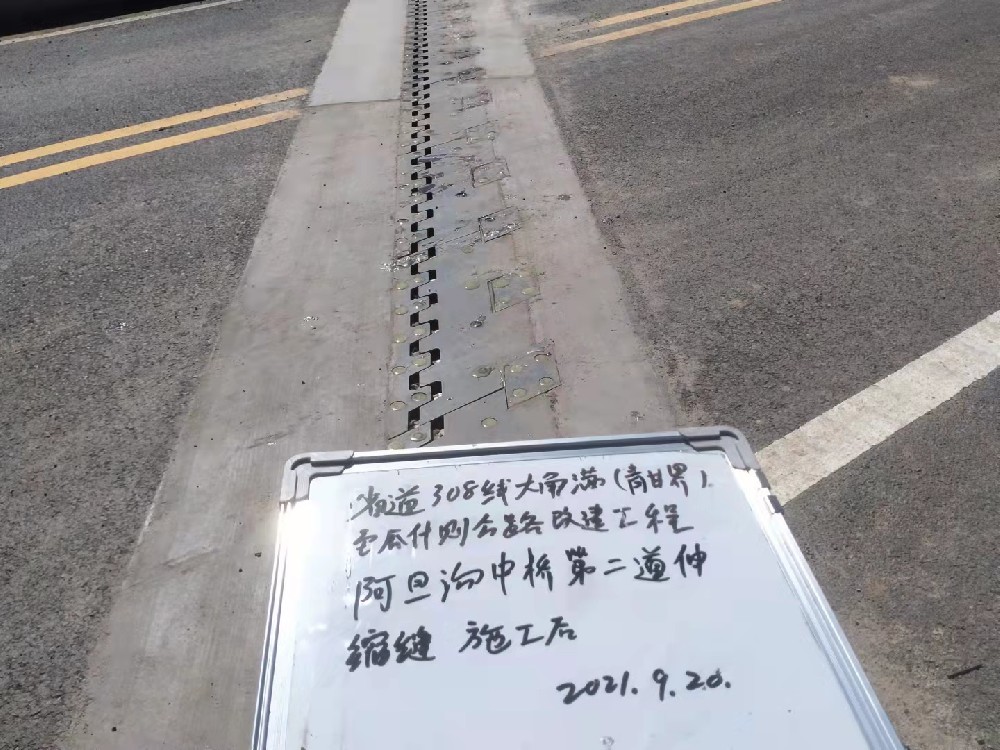 省道308线大南滩(青甘界)
至瓜什则公路改建工程
阿旦沟中桥第二道伸
缩缝 施工后
2021.9.20.